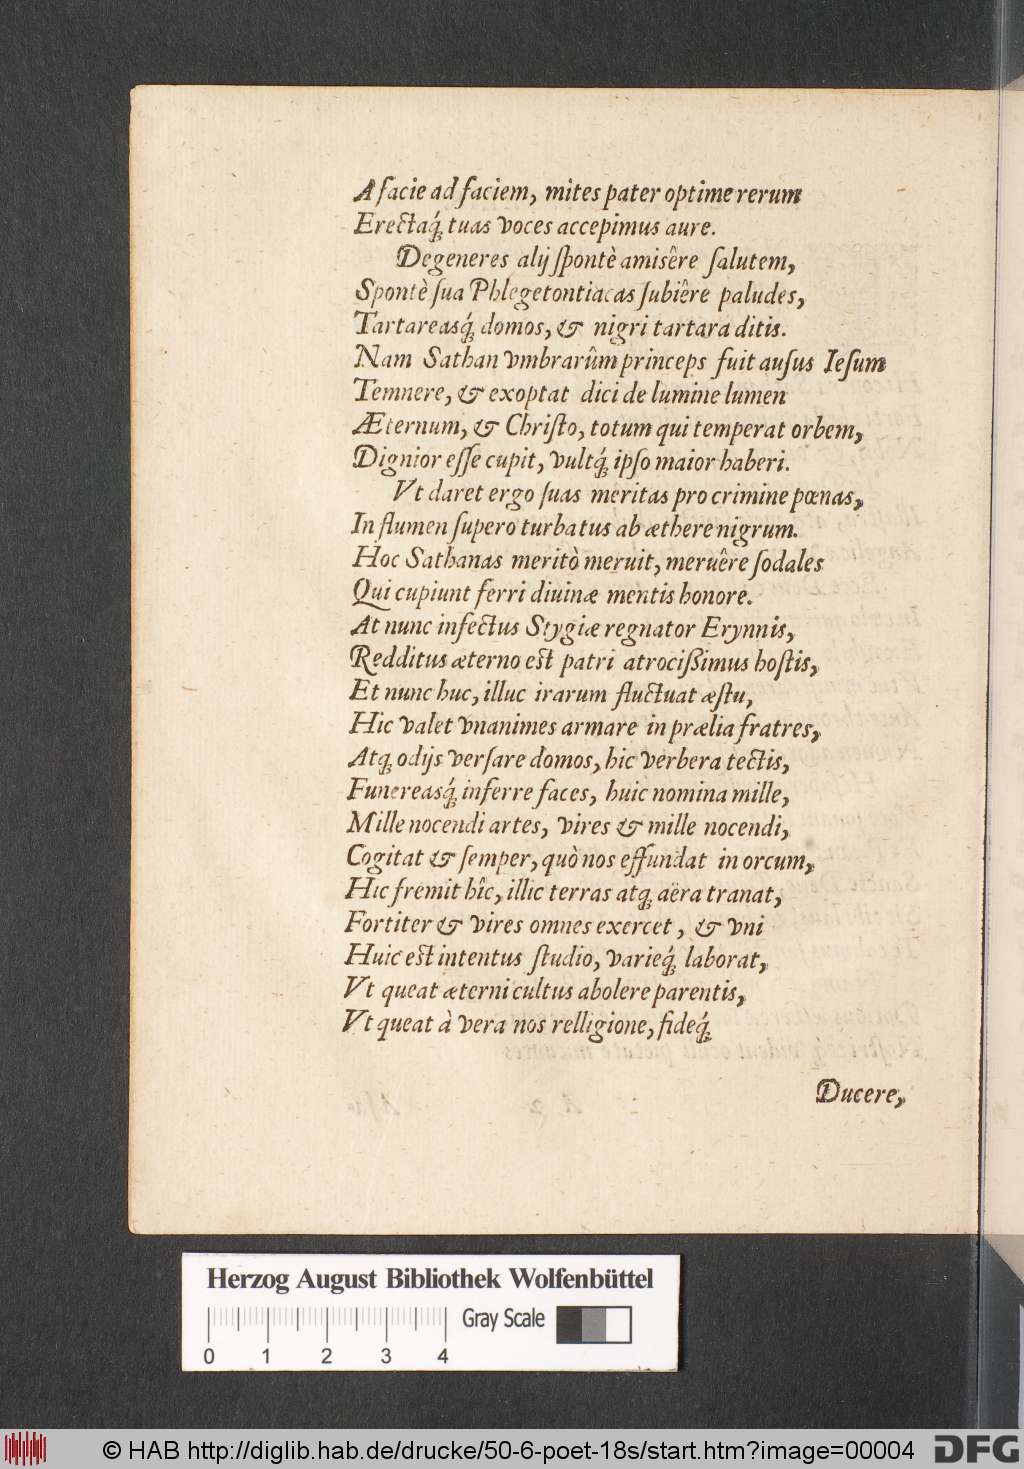 A facie ad faciem, mites pater optime rerum
Erectaq́; tuas voces accepimus aure.
Degeneres alij ſpontè amisêre ſalutem,
Spontè ſua Phlegetontiacas ſubiêre paludes,
Tartareasq́; domos, & nigri tartara ditis.
Nam Sathan vmbrarûm princeps fuit auſus Ieſum
Temnere, & exoptat dici de lumine lumen
Æternum, & Chriſto, totum qui temperat orbem,
Dignior eſſe cupit, vultq́; ipſo maior haberi.
Vt daret ergo ſuas meritas pro crimine pœnas,
In flumen ſupero turbatus ab æthere nigrum.
Hoc Sathanas meritò meruit, meruêre ſodales
Qui cupiunt ferri diuinæ mentis honore.
At nunc infectus Stygiæ regnator Erynnis,
Redditus æterno est patri atrocißimus hoſtis,
Et nunc huc, illuc irarum fluctuat æſtu,
Hic valet vnanimes armare in prælia fratres,
Atq; odijs verſare domos, hic verbera tectis,
Funereasq́; inferre faces, huic nomina mille,
Mille nocendi artes, vires & mille nocendi,
Cogitat & ſemper, quò nos effundat in orcum,
Hic fremit hîc, illic terras atq; aëra tranat,
Fortiter & vires omnes exercet, & vni
Huic est intentus ſtudio, varieq́; laborat,
Vt queat æterni cultus abolere parentis,
Vt queat à vera nos relligione, fideq́;
Ducere,
Herzog August Bibliothek Wolfenbüttel
Gray Scale
0 1 2 3 4
© HAB http://diglib.hab.de/drucke/50-6-poet-18s/start.htm?image=00004
DFG